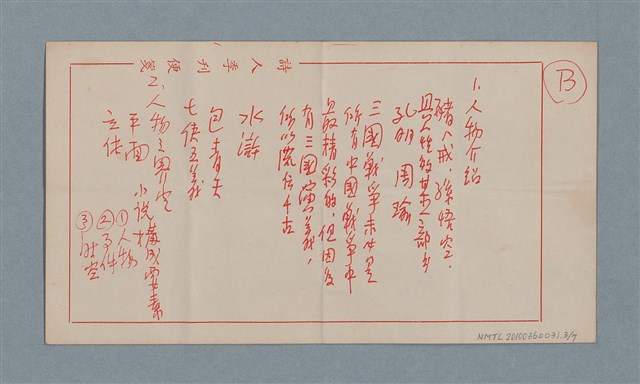 詩人季刊便箋
B
1.人物介紹
豬八戒,孫悟空.
具人性的某一部分
孔明 周瑜
三國戰爭未必是
所有中國戰爭中
最精彩的,但因為
有三國演義,
所以流傳千古
水滸
包青天
七俠五義
2.人物之界定
平面
立体
小說構成要素
①人物
②事件
③時空
NMTL20100360031.3/7